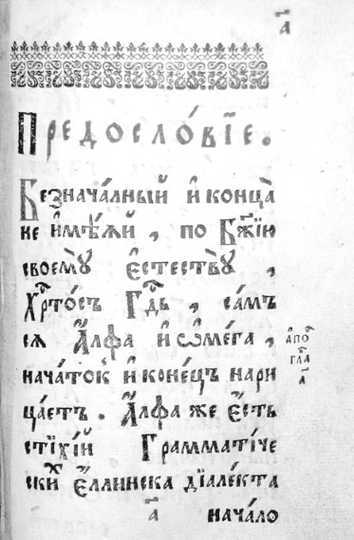 а҃
Предосло́вїе.
Безнача́лный и҆ конца̀
не и҆мѣ́ѧй, по Бж҃їю
своемꙋ̀ є҆стествꙋ̀,
Хрⷭ҇тосъ Гдⷭ҇ь, са́мъ
сѧ А҆́лфа и҆ ѡ҆ме́га,
нача́токъ и҆ коне́цъ нари
ца́етъ. А҆́лфа же є҆́сть
стїхі́й Грамматі́че
скиⷯ Є҆́ллинска дїале́кта
а҆поⷦ҇
гла
а҃
а҃
нача́ло